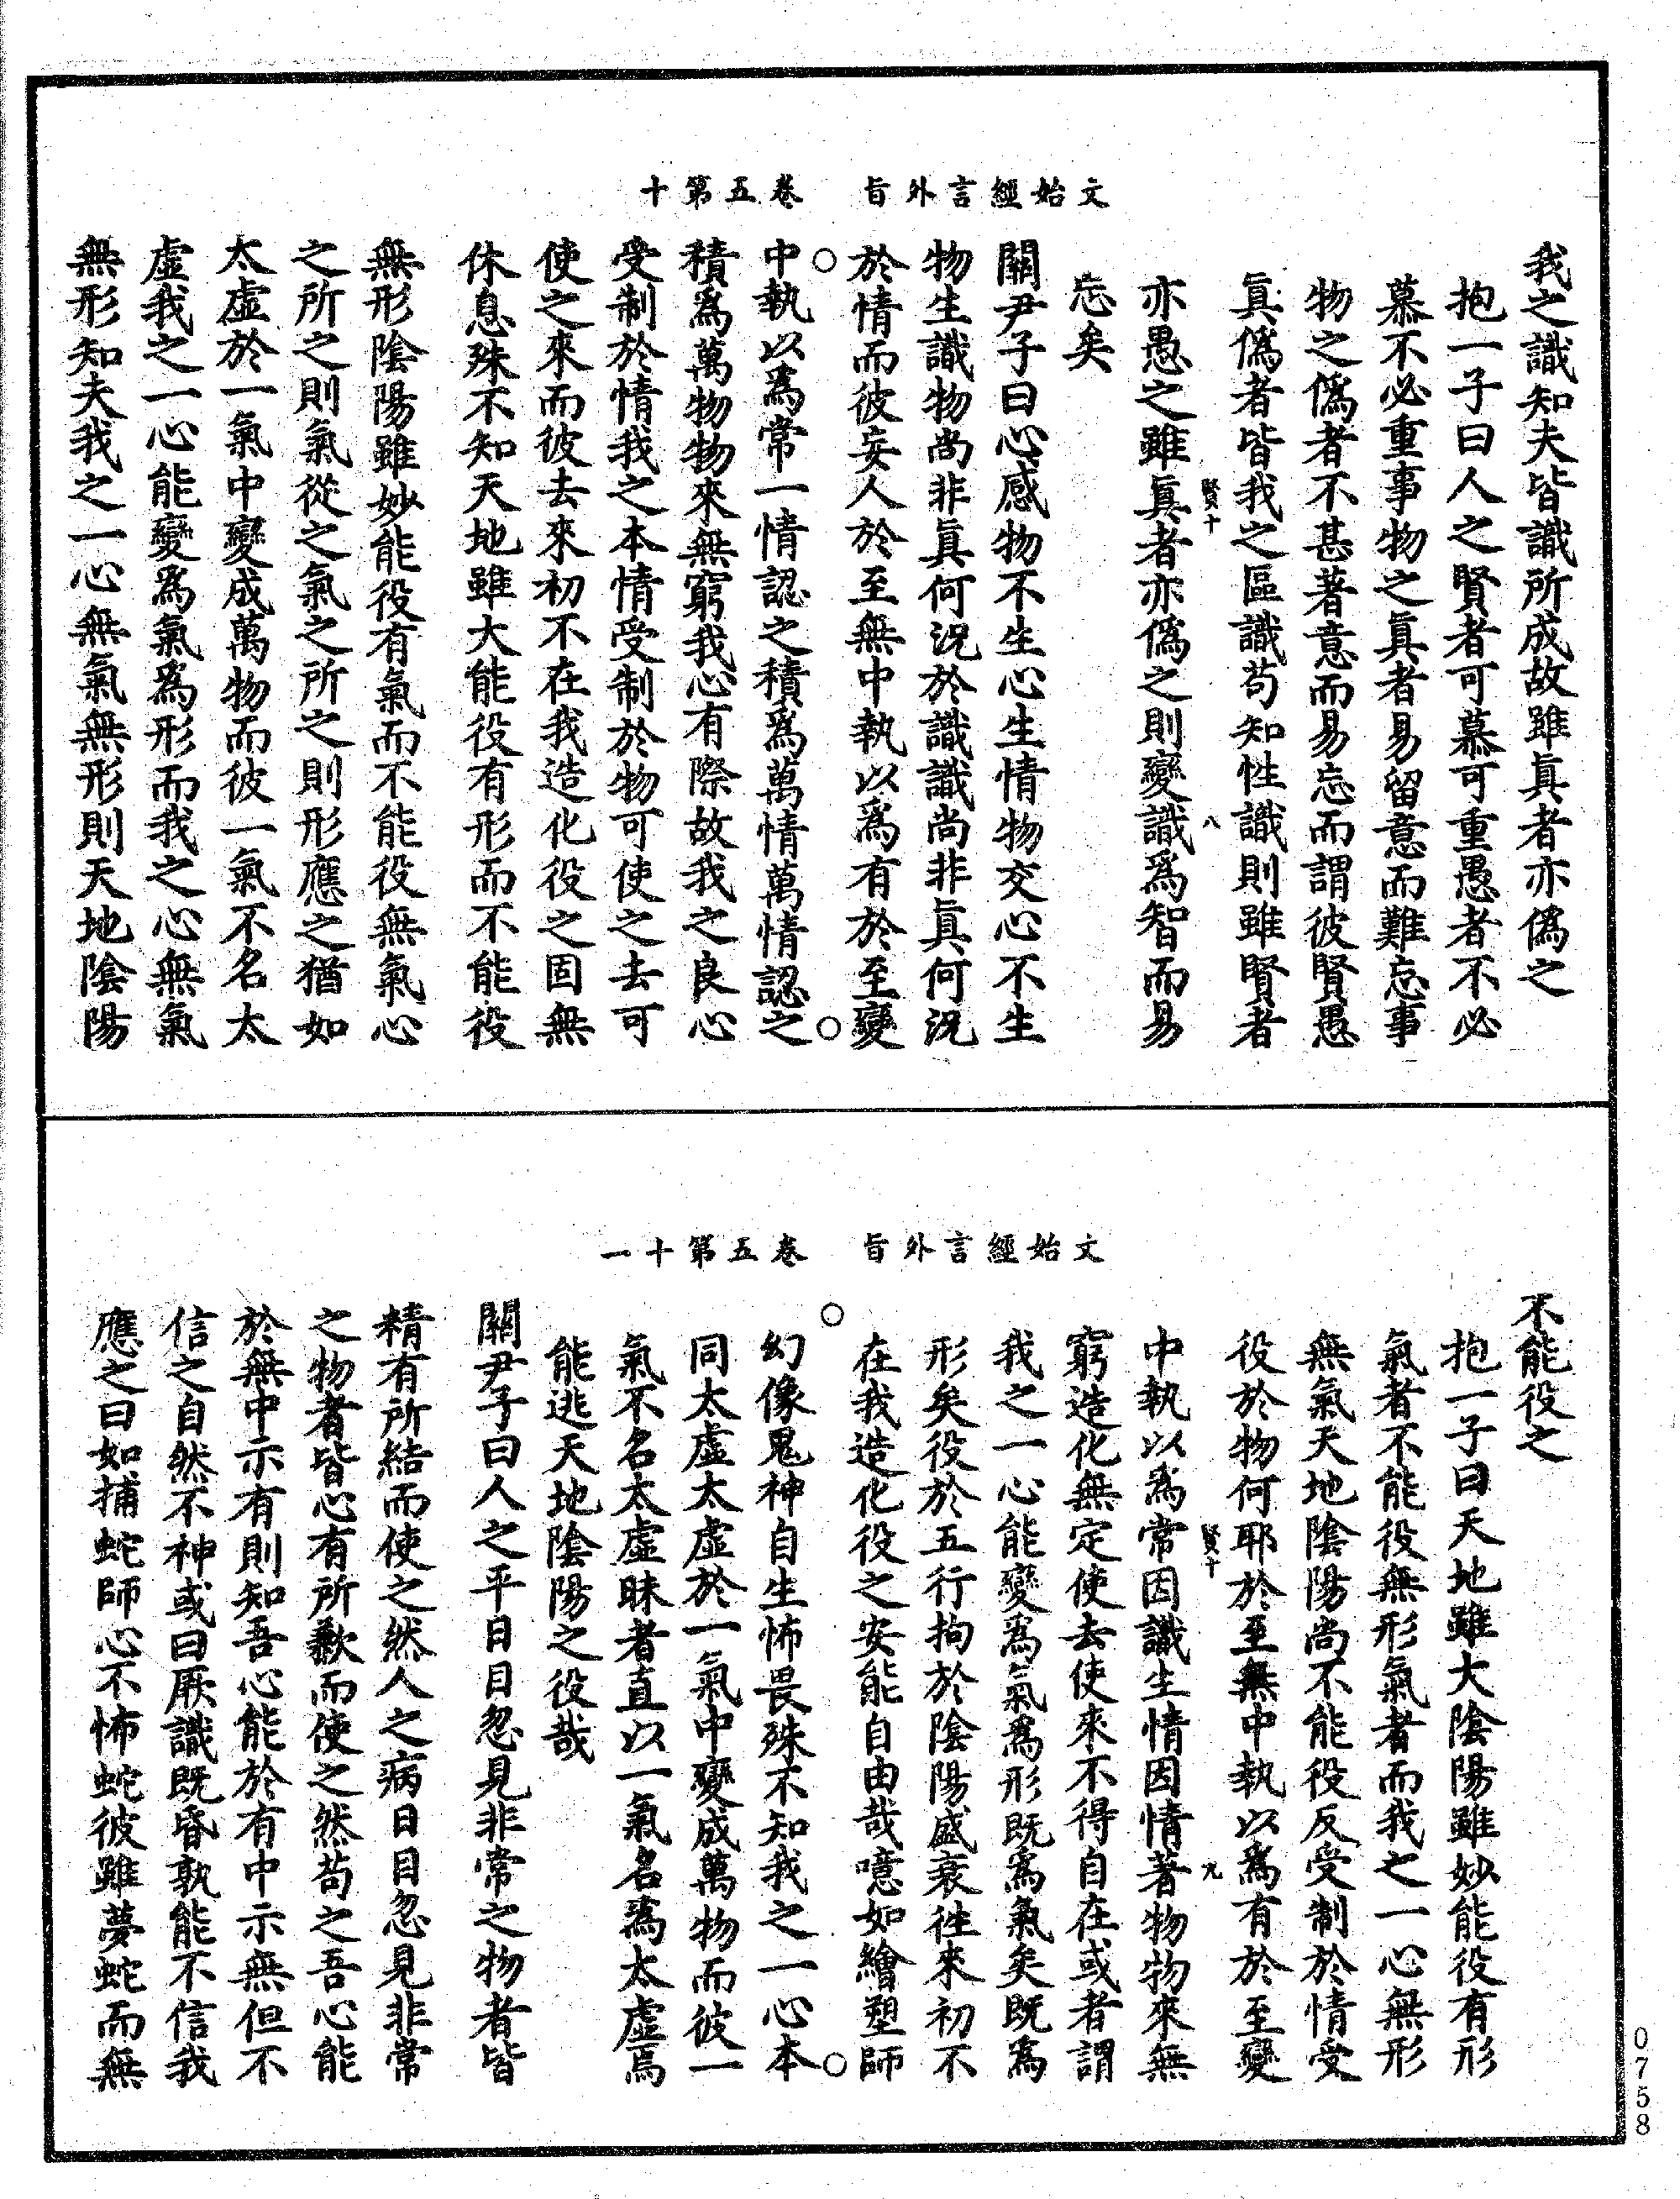 文始經言外旨　卷五第十
我之識知夫皆識所成故雖真者亦偽之
抱一子曰人之賢者可慕可重愚者不必
慕不必重事物之真者易留意而難忘事
物之偽者不甚著意而易忘而謂彼賢愚
真偽者皆我之區識苟知性識則雖賢者
賢十　八
亦愚之雖真者亦偽之則變識為智而易
忘矣
關尹子曰心感物不生心生情物交心不生
物生識物尚非真何況於識識尚非真何況
於情而彼妄人於至無中執以為有於至變
中執以為常一情認之積為萬情萬情認之
積為萬物物來無窮我心有際故我之良心
受制於情我之本情受制於物可使之去可
使之來而彼去來初不在我造化役之固無
休息殊不知天地雖大能役有形而不能役
無形陰陽雖妙能役有氣而不能役無氣心
之所之則氣從之氣之所之則形應之猶如
太虛於一氣中變成萬物而彼一氣不名太
虛我之一心能變為氣為形而我之心無氣
無形知夫我之一心無氣無形則天地陰陽
文始經言外旨　卷五第十一
不能役之
抱一子曰天地雖大陰陽雖妙能役有形
氣者不能役無形氣者而我之一心無形
無氣天地陰陽尚不能役反受制於情受
役於物何耶於至無中執以為有於至變
賢十　九
中執以為常因識生情因情著物物來無
窮造化無定使去使來不得自在或者謂
我之一心能變為氣為形既為氣矣既為
形矣役於五行拘於陰陽盛衰徃來初不
在我造化役之安能自由哉噫如繪塑師
幻像鬼神自生怖畏殊不知我之一心本
同太虛太虛於一氣中變成萬物而彼一
氣不名太虛昧者直以一氣名為太虛焉
能逃天地陰陽之役哉
關尹子曰人之平日目忽見非常之物者皆
精有所結而使之然人之病日目忽見非常
之物者皆心有所歉而使之然苟之吾心能
於無中示有則知吾心能於有中示無但不
信之自然不神或曰厥識既昏孰能不信我
應之曰如捕蛇師心不怖蛇彼雖夢蛇而無
0758